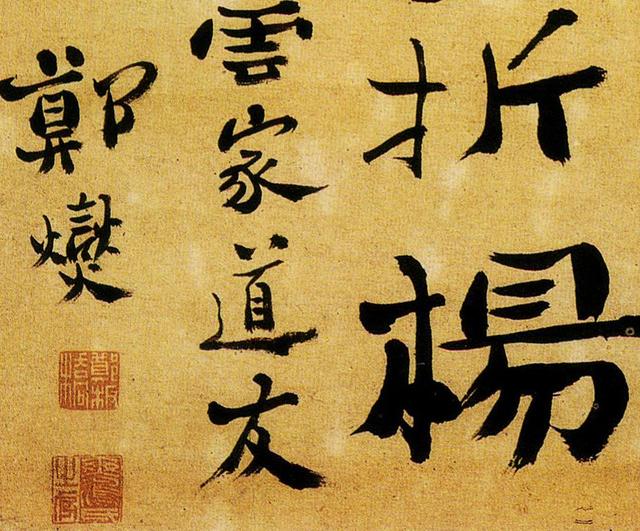 折楊
雲家道友
鄭燮
鄭板橋